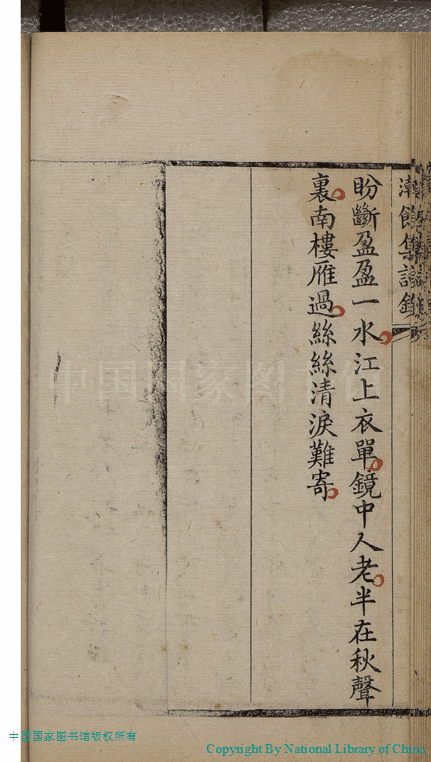 盼斷盈盈一水江上衣單鏡中人老半在秋聲
裏南樓雁過絲絲清淚難寄
中国国家图书馆版权所有
Copyright By National Library of China